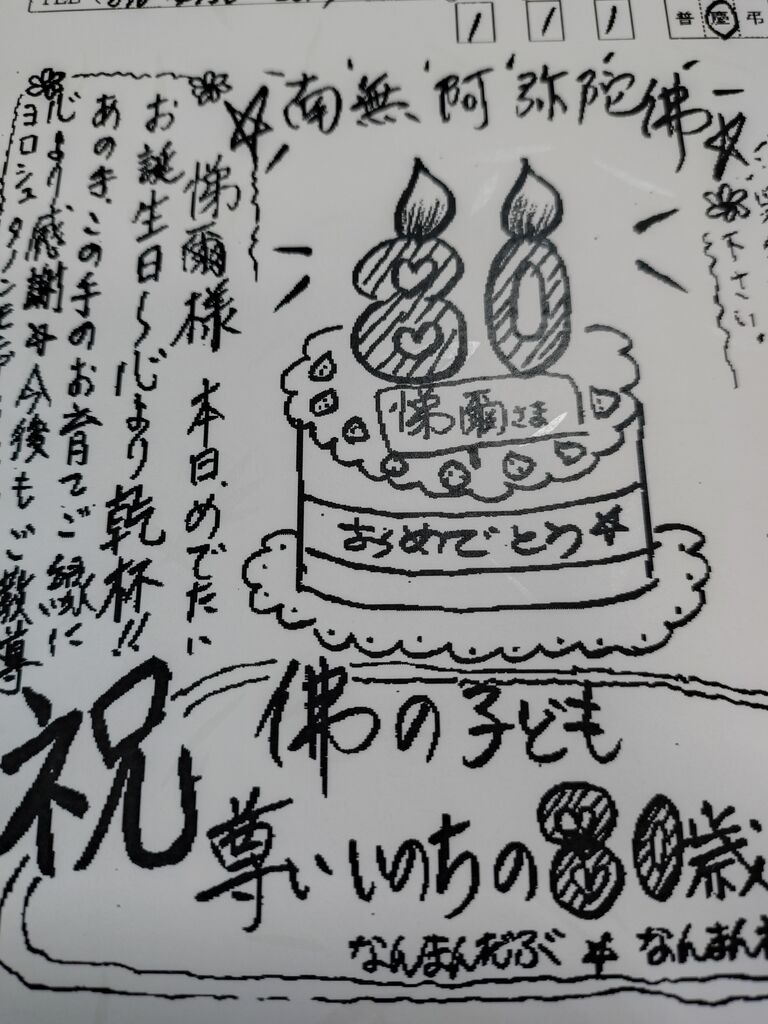 1 1 1
普 慶 弔
南無阿弥陀佛
下さい。
悌爾様 本日、めでたい
お誕生日〜心より乾杯!!
あのき、この手のお育てご縁に
心より感謝☆今後もご教導
ヨロシュ
80
悌爾さま
おめでとう☆
祝
佛の子ども
尊いいのちの80歳
なんまんだぶ☆なんまん